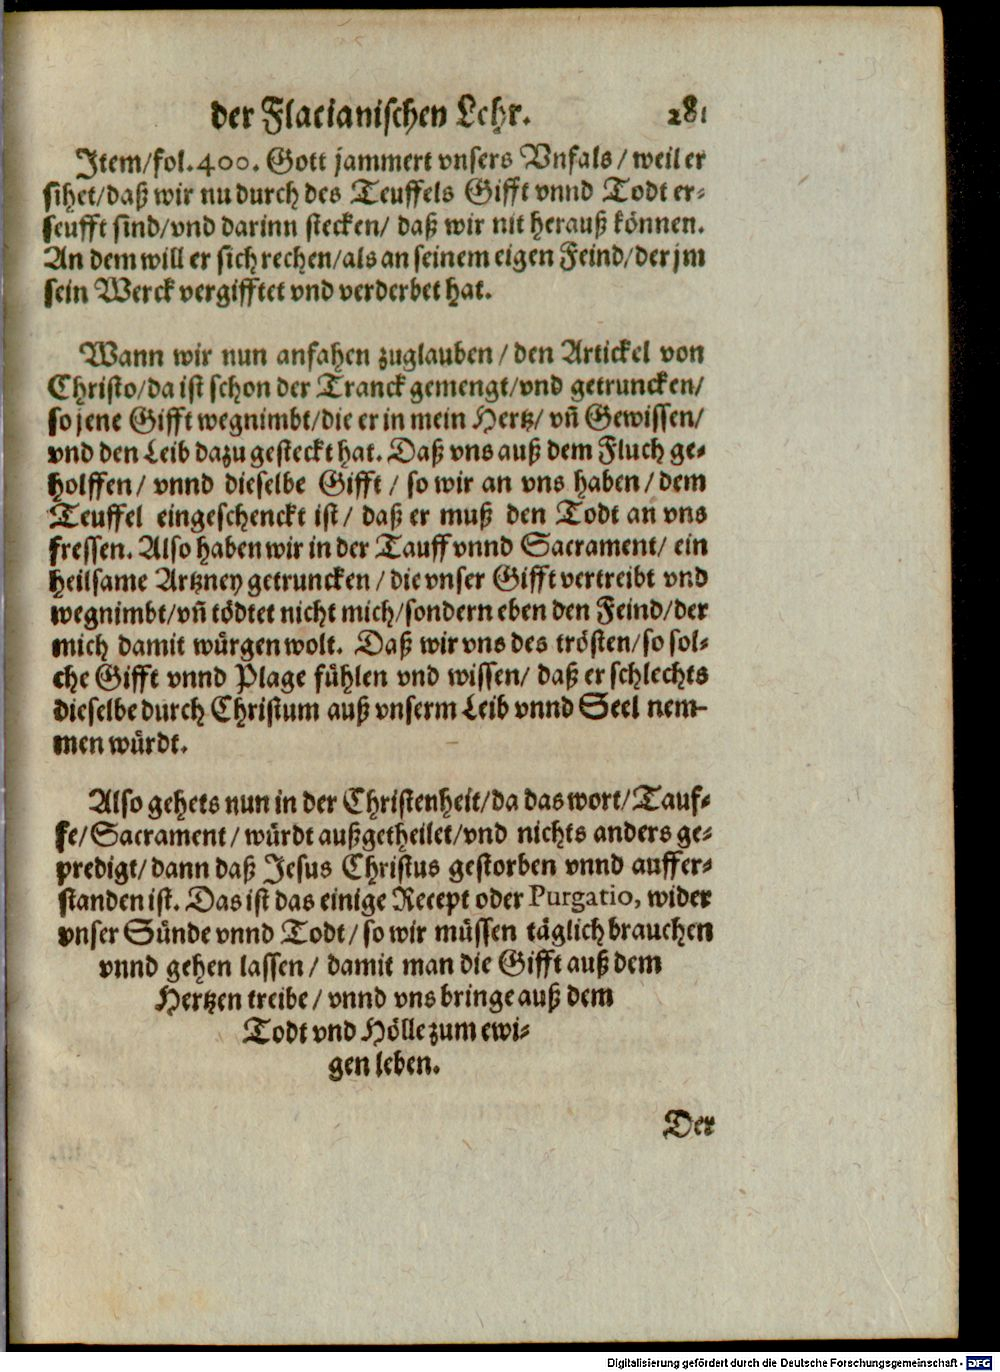 der Flacianischen Lehr. 281
Item/fol.400. Gott jammert vnsers Vnfals/weil er
sihet/daß wir nu durch des Teuffels Gifft vnnd Todt er-
seufft sind/vnd darinn stecken/ daß wir nit herauß können.
An dem will er sich rechen/als an seinem eigen Feind/der jm
sein Werck vergifftet vnd verderbet hat.
Wann wir nun anfahen zuglauben/den Artickel von
Christo/da ist schon der Tranck gemengt/vnd getruncken/
so jene Gifft wegnimbt/die er in mein Hertz/ vñ Gewissen/
vnd den Leib dazu gesteckt hat. Daß vns auß dem Fluch ge-
holffen/ vnnd dieselbe Gifft/ so wir an vns haben/dem
Teuffel eingeschenckt ist/ daß er muß den Todt an vns
fressen. Also haben wir in der Tauff vnnd Sacrament/ ein
heilsame Artzney getruncken/die vnser Gifft vertreibt vnd
wegnimbt/vñ tödtet nicht mich/sondern eben den Feind/der
mich damit würgen wolt. Daß wir vns des trösten/so sol-
che Gifft vnnd Plage fühlen vnd wissen/ daß er schlechts
dieselbe durch Christum auß vnserm Leib vnnd Seel nem-
men würdt.
Also gehets nun in der Christenheit/da das wort/Tauf-
fe/Sacrament/würdt außgetheilet/vnd nichts anders ge-
predigt/dann daß Jesus Christus gestorben vnnd auffer-
standen ist. Das ist das einige Recept oder Purgatio, wider
vnser Sünde vnnd Todt/so wir müssen täglich brauchen
vnnd gehen lassen/ damit man die Gifft auß dem
Hertzen treibe/ vnnd vns bringe auß dem
Todt vnd Hölle zum ewi-
gen leben.
Der
Digitalisierung gefördert durch die Deutsche Forschungsgemeinschaft - DFG